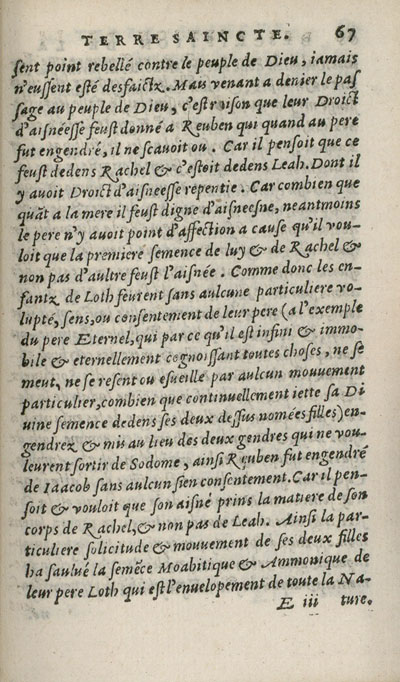 TERRE SAINCTE. 67
sent point rebellé contre le peuple de Dieu, iamais
n'eussent esté desfaictz. Mais venant a denier le pas
sage au peuple de Dieu, c'est raison que leur Droict
d'aisnéesse feust donné a Reuben qui quand au pere
fut engendré, il ne scauoit ou. Car il pensoit que ce
feust dedens Rachel & c'estoit dedens Leah. Dont il
y auoit Droict d'aisneesse repentie. Car combien que
quãt a la mere il feust digne d'aisneesne, neantmoins
le pere n'y auoit point d'affection a cause qu'il vou-
loit que la premiere semence de luy & de Rachel &
non pas d'aultre feust l'aisnée. Comme donc les en-
fantz de Loth feurent sans aulcune particuliere vo-
lupté, sens, ou consentement de leur pere (a l'exemple
du pere Eternel, qui par ce qu'il est infini & immo-
bile & eternellement cognoissant toutes choses, ne se
meut, ne se resent ou esueille par aulcun mouuement
particulier, combien que continuellement iette sa Di
uine semence dedens ses deux dessus nomées filles) en-
gendrez & mis au lieu des deux gendres qui ne vou-
leurent sortir de Sodome, ainsi Reuben fut engendré
de Iaacob sans aulcun sien consentement. Car il pen-
soit & vouloit que son aisné prins la matiere de son
corps de Rachel, & non pas de Leah. Ainsi la par-
ticuliere solicitude & mouuement de ses deux filles
ha saulué la semẽce Moabitique & Ammonique de
leur pere Loth qui est l'enuelopement de toute la Na-
E iii ture.